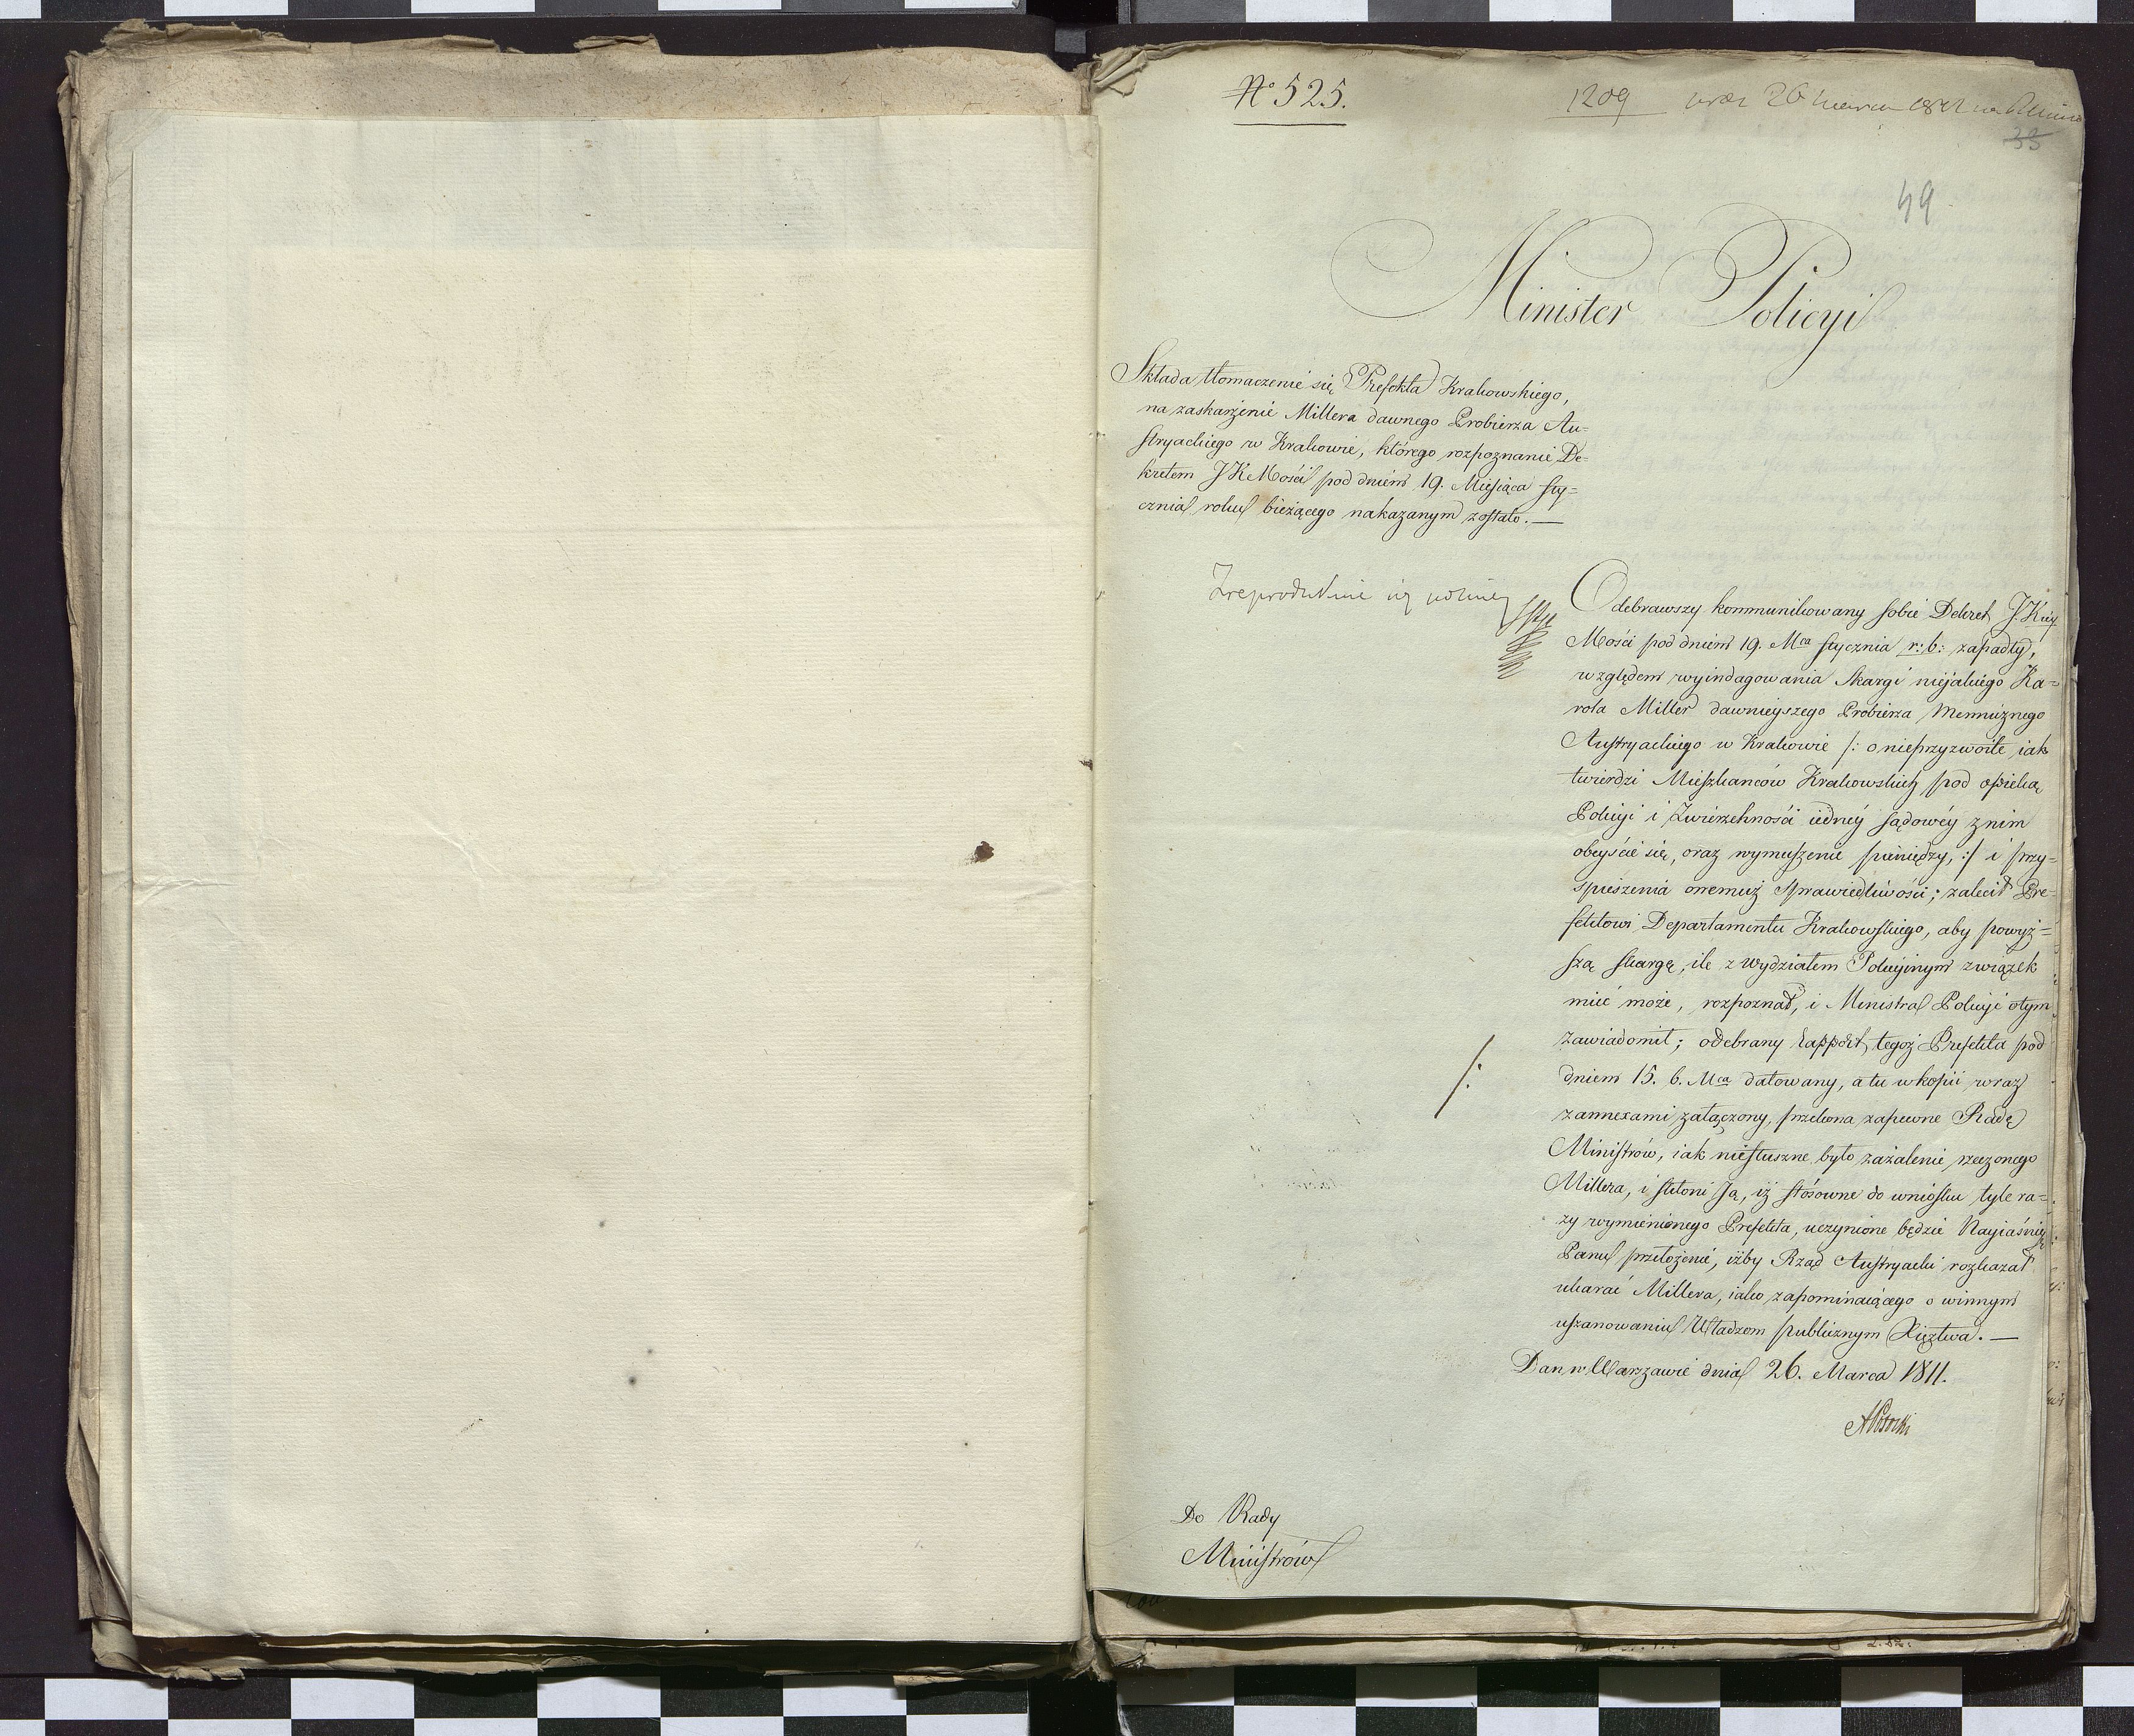 No 525.
1209
33
49
Minister Policyi
Składa tłomaczenie się Prefekta Krakowskiego,
na zaskarżenie Millera dawnego Probierza Au=
stryackiego w Krakowie, którego rozpoznanie De=
kretem JKMości pod dniem 19. Miesiąca Sty=
cznia roku bieżącego nakazanym zostało. —
Odebrawszy kommunikowany sobie Dekret J. Kiey
Mości pod dniem 19. Mca Stycznia r: b: zapadły,
względem wyindagowania Skargi niejakiego Ka=
rola Miller dawnieyszego Probierza Menniznego
Austryackiego w Krakowie /: o nieprzyzwoite iak
twierdzi Mieszkanców Krakowskich pod opieką
Policyi i Zwierzchności iedney sądowéy z nim
obeyście się, oraz wymuszenie pieniędzy, :/ i przy=
spieszenia onemuż sprawiedliwości; zalecił Pre=
fektowi Departamentu Krakowskiego, aby powyż=
szą skargę, ile z wydziałem Policyinym związek
mieć może, rozpoznał, i Ministra Policyi otym
zawiadomił; odebrany Rapport tegoż Prefekta pod
dniem 15. b. Mca datowany, a tu w kopii wraz
z annexami załączony, przekona zapewne Radę
Ministrów, iak niesłuszne było zażalenie rzeczonego
Millera, i skłoni Ją, iż stósowne do wniosku tyle ra=
zy wymienionego Prefekta, uczynione będzie Nayiaśniey:
Panu przełożenie, iżby Rząd Austryacki rozkazał
ukarać Millera, iako zapominaiącego o winnym
uszanowaniu Władzom publicznym Xięztwa. —
Dan w Warszawie dnia 26. Marca 1811.
APotocki
Do Rady
Ministrów